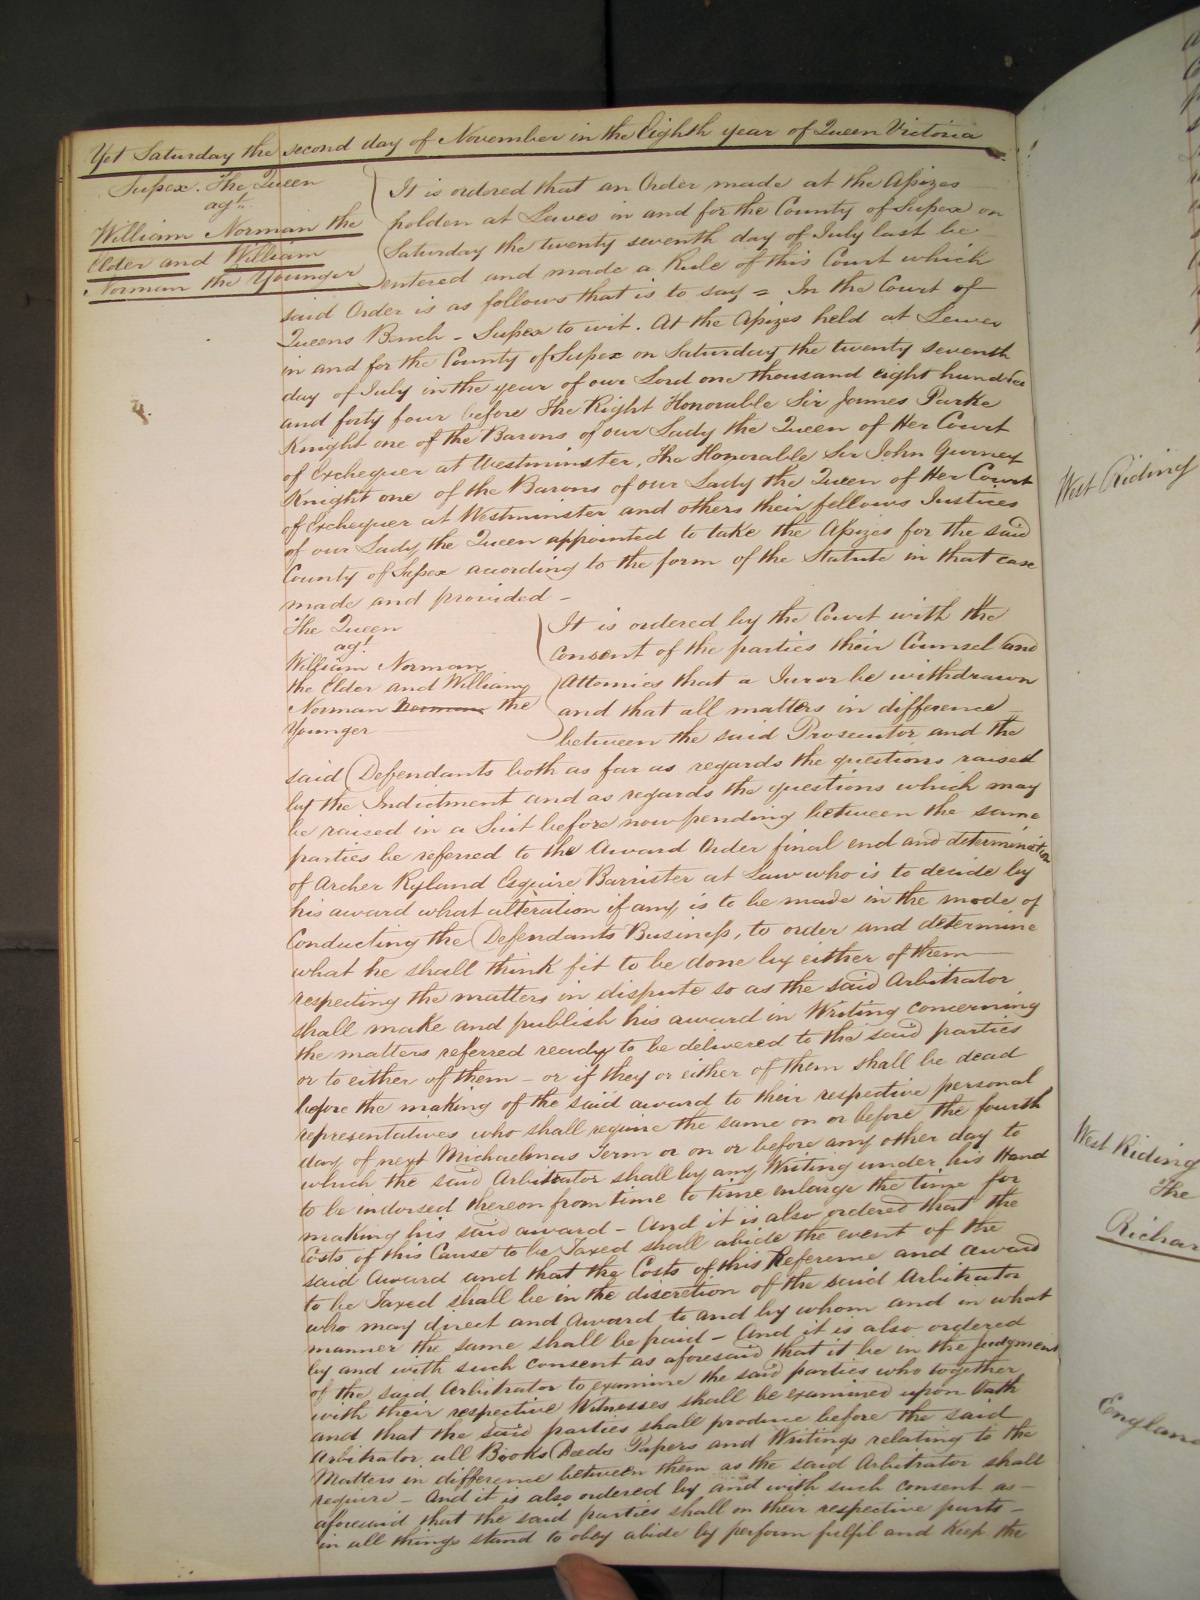 Yet Saturday the second day of November in the Eighth year of Queen Victoria
Sussex. The Queen
agt.
William Norman the
Elder and William
Norman the Younger
It is ordered that an Order made at the Assizes
holden at Lewes in and for the County of Sussex on
Saturday the twenty seventh day of July last be
entered and made a Rule of this Court which
said Order is as follows that is to say = In the Court of
Queens Bench - Sussex to wit. At the Assizes held at Lewes
in and for the County of Sussex on Saturday the twenty seventh
day of July in the year of our Lord one thousand eight hundred
and forty four before The Right Honorable Sir James Parke
Knight one of the Barons of our Lady the Queen of Her Court
of Exchequer at Westminster, The Honorable Sir John Gurney
Knight one of the Barons of our Lady the Queen of Her Court
of Exchequer at Westminster and others their fellows Justices
of our Lady the Queen appointed to take the Assizes for the said
County of Sussex according to the form of the Statute in that case
made and provided -
The Queen
agt.
William Norman
the Elder and William
Norman Norman the
Younger
It is ordered by the Court with the
Consent of the parties their Counsel and
Attornies that a Juror be withdrawn
and that all matters in difference
between the said Prosecutor and the
said Defendants both as far as regards the questions raised
by the Indictment and as regards the questions which may
be raised in a Suit before now pending between the same
parties be referred to the Award Order final end and determination
of Archer Ryland Esquire Barrister at Law who is to decide by
his award what alteration if any is to be made in the mode of
Conducting the Defendants Business, to order and determine
what he shall think fit to be done by either of them
respecting the matters in dispute so as the said Arbitrator
shall make and publish his award in Writing concerning
the matters referred ready to be delivered to the said parties
or to either of them - or if they or either of them shall be dead
before the making of the said award to their respective personal
representatives who shall require the same on or before the fourth
day of next Michaelmas Term or on or before any other day to
which the said Arbitrator shall by any Writing under his Hand
to be indorsed thereon from time to time enlarge the time for
making his said award - And it is also ordered that the
Costs of this Cause to be Taxed shall abide the event of the
said Award and that the Costs of this Reference and award
to be Taxed shall be in the discretion of the said Arbitrator
who may direct and Award to and by whom and in what
manner the same shall be paid - And it is also ordered
by and with such consent as aforesaid that it be in the Judgment
of the said Arbitrator to examine the said parties who together
with their respective Witnesses shall be examined upon Oath
and that the said parties shall produce before the said
Arbitrator all Books Deeds Papers and Writings relating to the
Matters in difference between them as the said Arbitrator shall
require - And it is also ordered by and with such consent as
aforesaid that the said parties shall on their respective parts
in all things stand to obey abide by perform fulfil and keep the
West Riding
West Riding
The
Richar
England